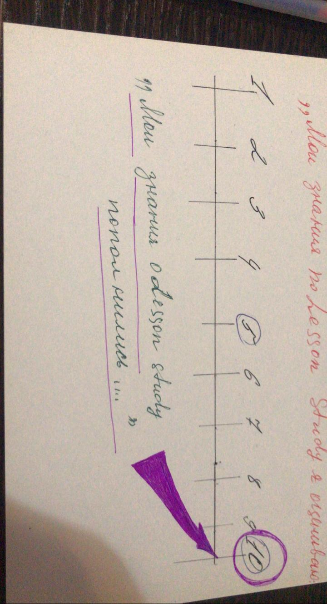 „Мои знания по Lesson Study я оцениваю
1 2 3 4 5 6 7 8 9 10
„Мои знания о Lesson study
пополнились .... "